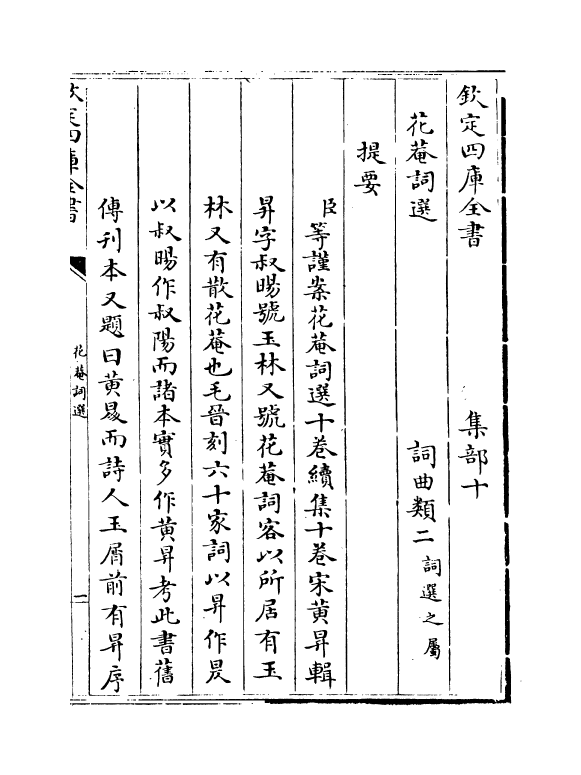 欽定四庫全書　集部十
花菴詞選　詞曲類二 詞選之屬
提要
臣等謹案花菴詞選十卷續集十卷宋黄昇輯
昇字叔暘號玉林又號花菴詞客以所居有玉
林又有散花菴也毛晉刻六十家詞以昇作昃
以叔暘作叔陽而諸本實多作黄昇考此書舊
傳刊本又題曰黄昃而詩人玉屑前有昇序
欽定四庫全書
花菴詞選
一